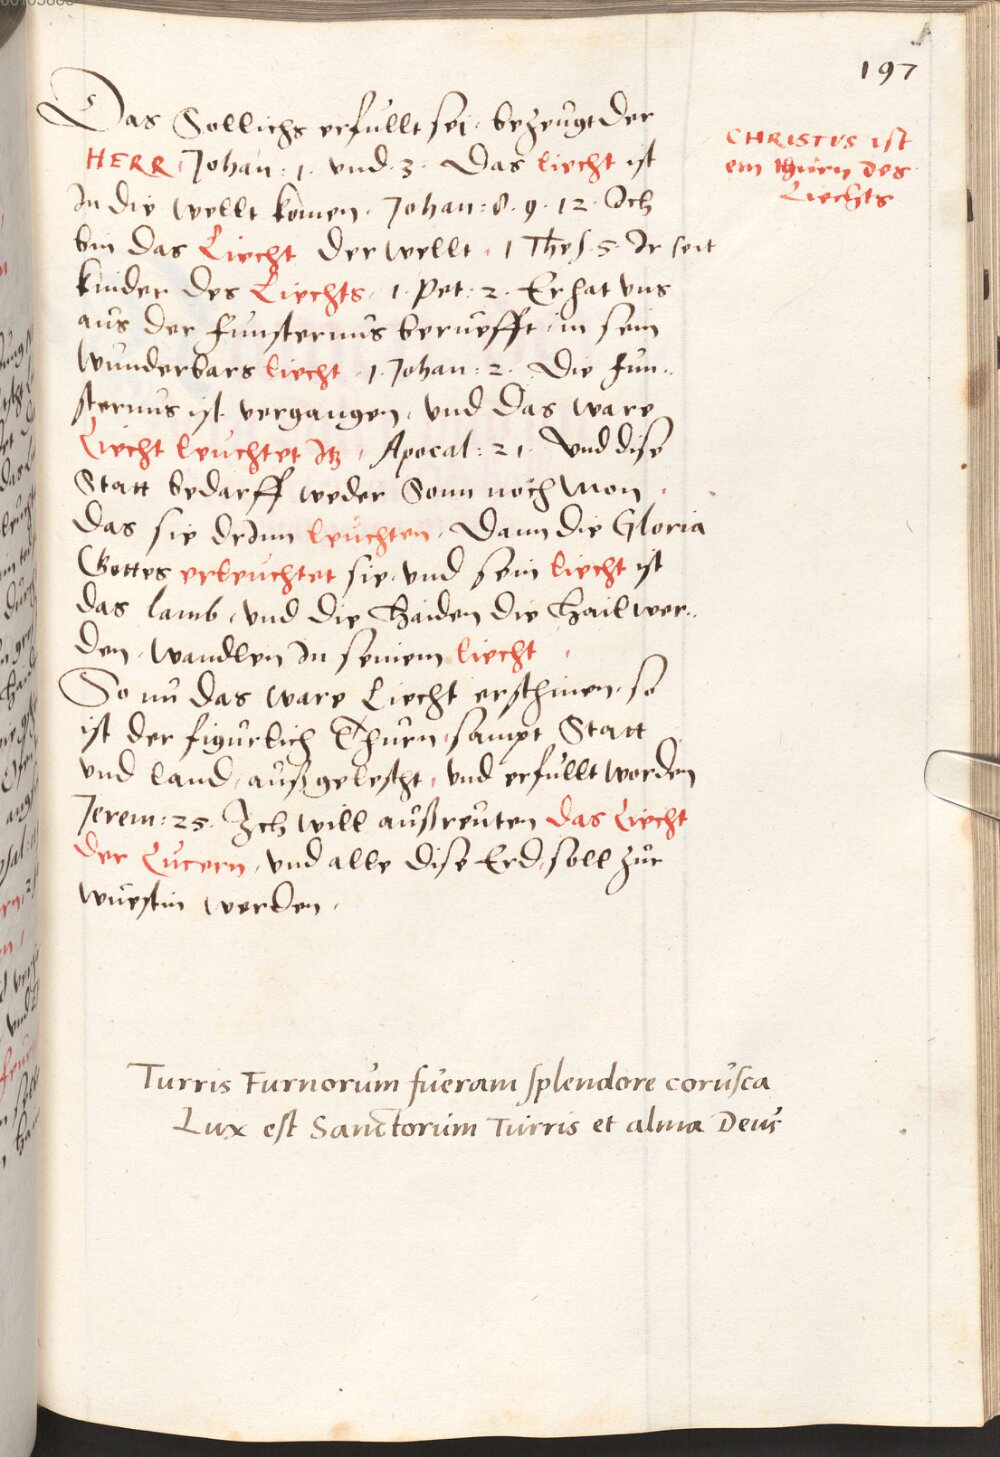 197
Das Sollichs erfullt sei, bezeugt der
HERR, Johan: 1. vnd. 3. Das liecht ist
In die wellt komen. Johan: 8. 9. 12. Ich
bin das Liecht der wellt. 1 Thes. 5. Ir seit
kinder des Liechts. 1. Pet: 2. Er hat vns
aus der funsternus berüefft in sein
wunderbars liecht. 1. Johan: 2. Die fun..
sternus ist vergangen, vnd das ware
Liecht leuchtet Itz, Apocal: 21. Vnd dise
Statt bedarff weder Sonn noch Mon,
das sie drInn leuchten. Dann die Gloria
Gottes erleuchtet sie, vnd sein liecht ist
das lamb, vnd die Haiden die Hail wer..
den, wandlen In seinem liecht.
So nu das ware Liecht erschinen, so
ist der figurlich Thurn, sampt Statt
vnd land, außgelescht, vnd erfullt worden
Jerem: 25. Ich will außreuten das Liecht
der Lucern, vnd alle dise Erd, soll zur
wüestin werden.
CHRISTVS ist
ein thurn des
Liechts
Turris Furnorum fueram splendore corusca
Lux est Sanctorum Turris et alma Deus